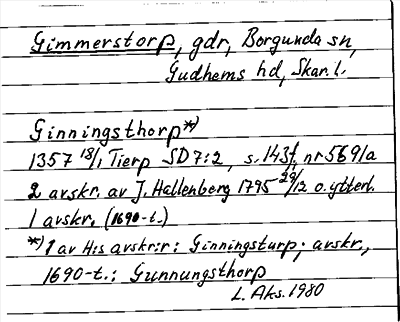 Gimmerstorp, gdr, Borgunda sn,
Gudhems hd, Skar. l.
Ginningsthorp*)
1357 18/1 Tierp SD 7:2, s. 143f, nr 5691a
2 avskr. av J. Hallenberg 1795 29/12 o. ytterl.
1 avskr. (1690-t.)
*) 1 av H:s avskr:r: Ginningsturp; avskr.,
1690-t.: Gunnungsthorp
L. Aks. 1980